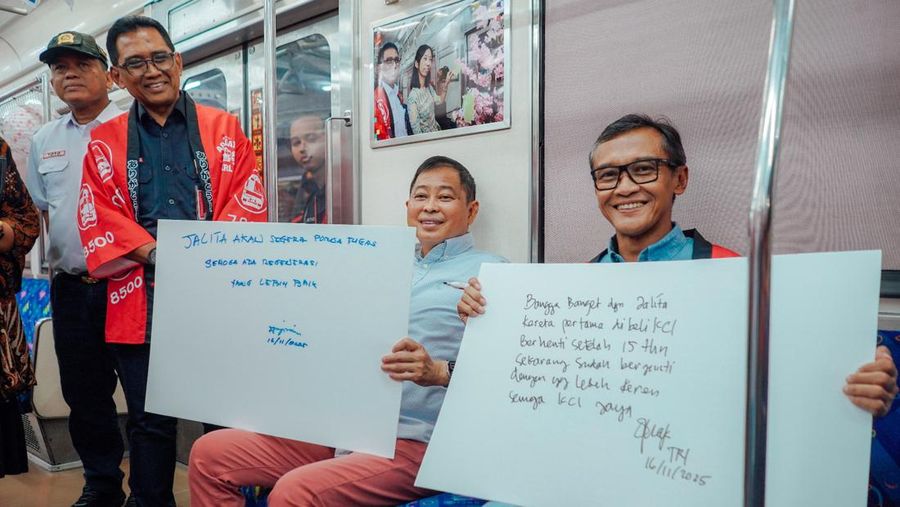 JALITA AKAN SEGERA PURNA TUGAS
SEMOGA ADA REGENERASI
YANG LEBIH BAIK
16/11/2025
Bangga Banget dgn Jalita
Kereta pertama dibeli KCI
Berhenti setelah 15 thn
Sekarang sudah berganti
dengan yg lebih keren
semoga KCI Jaya
TRI
16/11/2025
8500
8500